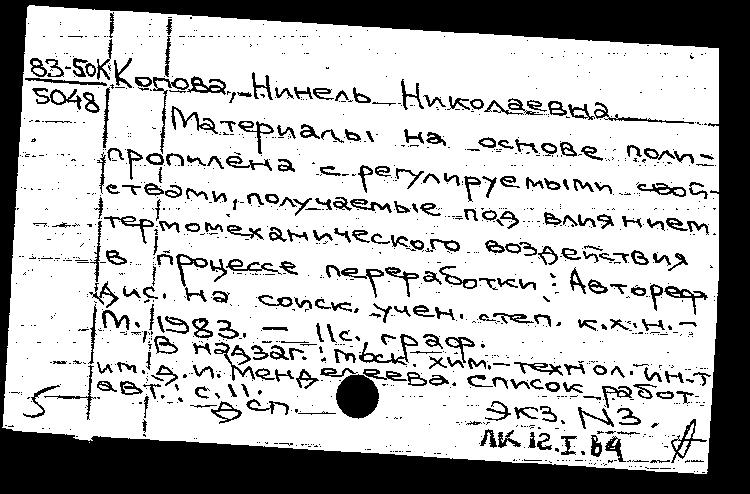 83-50К
5048
Котова, Нинель Николаевна.
Материалы на основе поли-
пропилена с регулируемыми свой-
ствами, получаемые под влиянием
термомеханического воздействия
в процессе переработки: Автореф
дис. на соиск. учен. степ. к.х.н. -
М., 1983. - 11с., граф.
В надзаг.: Моск. хим.-технол. ин-т
им. Д.И. Менделеева. Список работ
авт.: с. 11.
Дсп.
Экз. N3.
ЛК 12.I.84